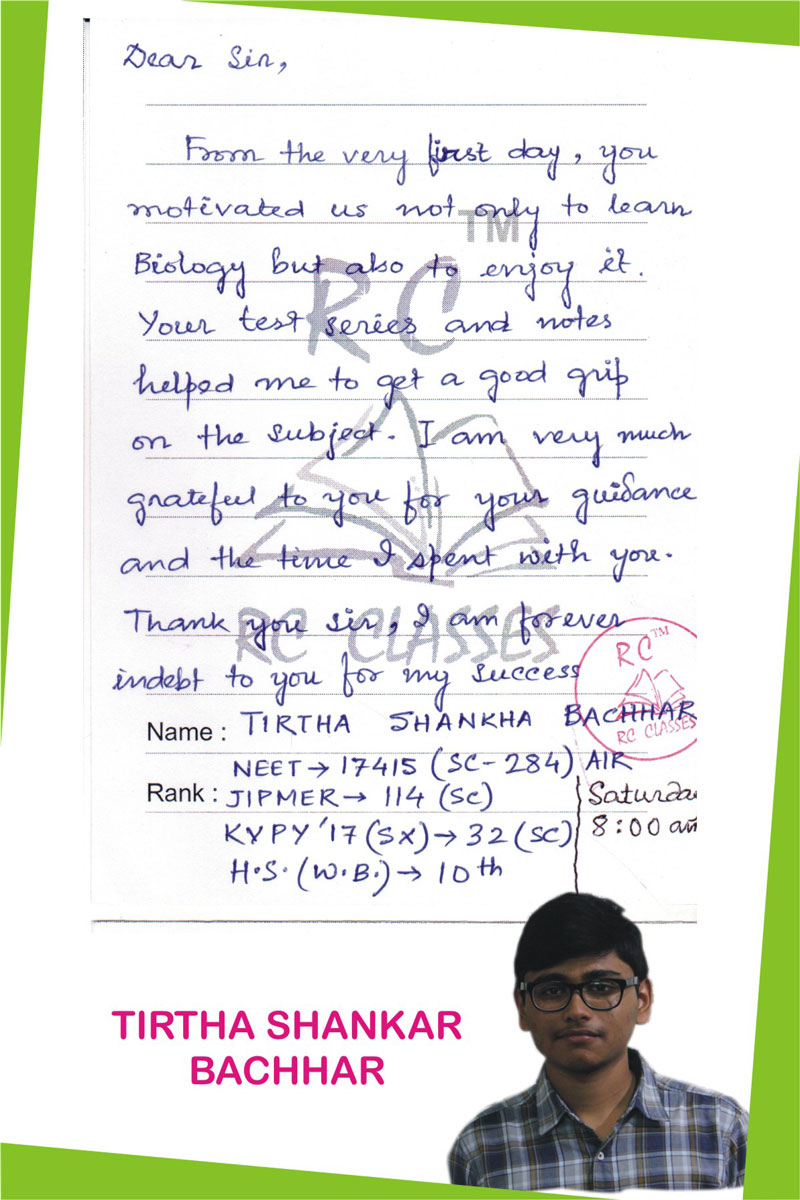 Dear Sir,
From the very first day, you
motivated us not only to learn
TM
Biology but also to enjoy it.
RC
Your test series and notes
helped me to get a good grip
on the subject. I am very much
grateful to you for your guidance
and the time I spent with you.
Thank you sir, I am forever
RC CLASSES
indebt to you for my success
RC TM
RC CLASSES
Name : TIRTHA SHANKHA BACHHAR
NEET → 17415 (SC-284) AIR
Rank : JIPMER → 114 (SC)
KVPY '17 (SX) → 32 (SC)
H.S. (W.B.) → 10th
Saturda
8:00 am
TIRTHA SHANKAR
BACHHAR